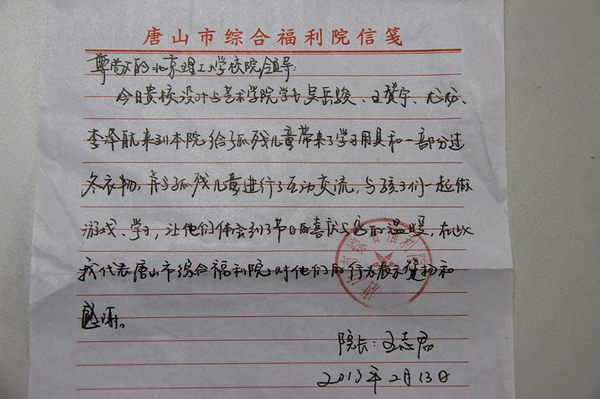 唐山市综合福利院信笺
尊敬的北京理工大学校院领导:
今日贵校设计与艺术学院学生吴岳骏、王赞宇、尤龙、
李泽航来到本院给孤残儿童带来了学习用具和一部分过
冬衣物,并与孤残儿童进行了互动交流,与孩子们一起做
游戏、学习,让他们体会到了节日的喜庆与爱的温暖,在此
我代表唐山市综合福利院对他们的行为表示赞扬和
感谢。
院长:王志君
2012年2月13日